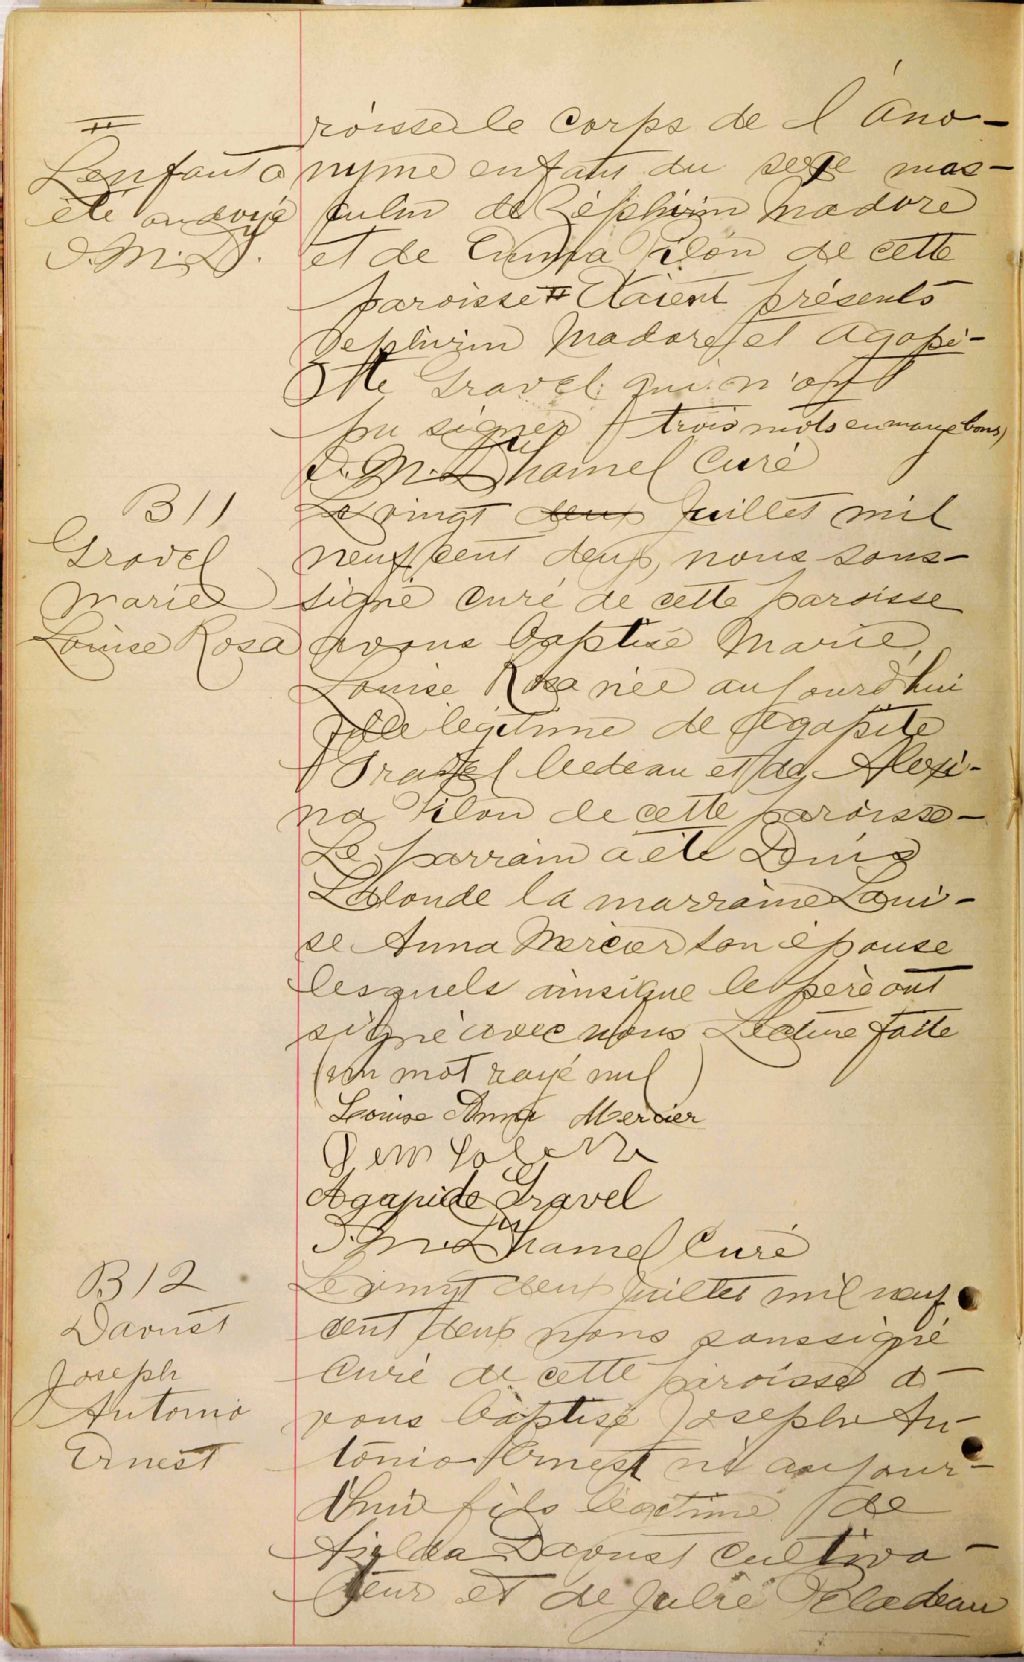 #
L'enfant a
été ondoyé
J. M. D.
roisse le corps de l'ano-
nyme enfant du sexe mas-
culin de Zéphirin Madore
et de Emma Pilon de cette
paroisse # Etaient présents
Zephirin Madore et Agapi-
te Gravel qui n'ont
pu signer (trois mots en marge bons)
J. M. Duhamel Curé
B 11
Gravel
Marie
Louise Rosa
Le vingt deux Juillet mil
neuf cent deux, nous sous-
signé curé de cette paroisse
avons baptisé Marie,
Louise Rosa née aujourd'hui
fille légitime de Agapite
Gravel bedeau et de Alexi-
na Pilon de cette paroisse-
Le parrain a été
Lalonde la marraine Loui-
se Anna Mercier son épouse
lesquels ainsi que le père ont
signé avec nous Lecture faite
(un mot rayé nul)
Louise Anna Mercier
Agapide Gravel
J. M. Duhamel Curé
B 12
Daoust
Joseph
Antonio
Ernest
Le vingt deux Juillet mil neuf
cent deux nous soussigné
Curé de cette paroisse a-
vons baptisé Joseph An-
tonio Ernest né aujour-
d'hui fils légitime de
Daoust cultiva-
teur et de Julie Pladeau